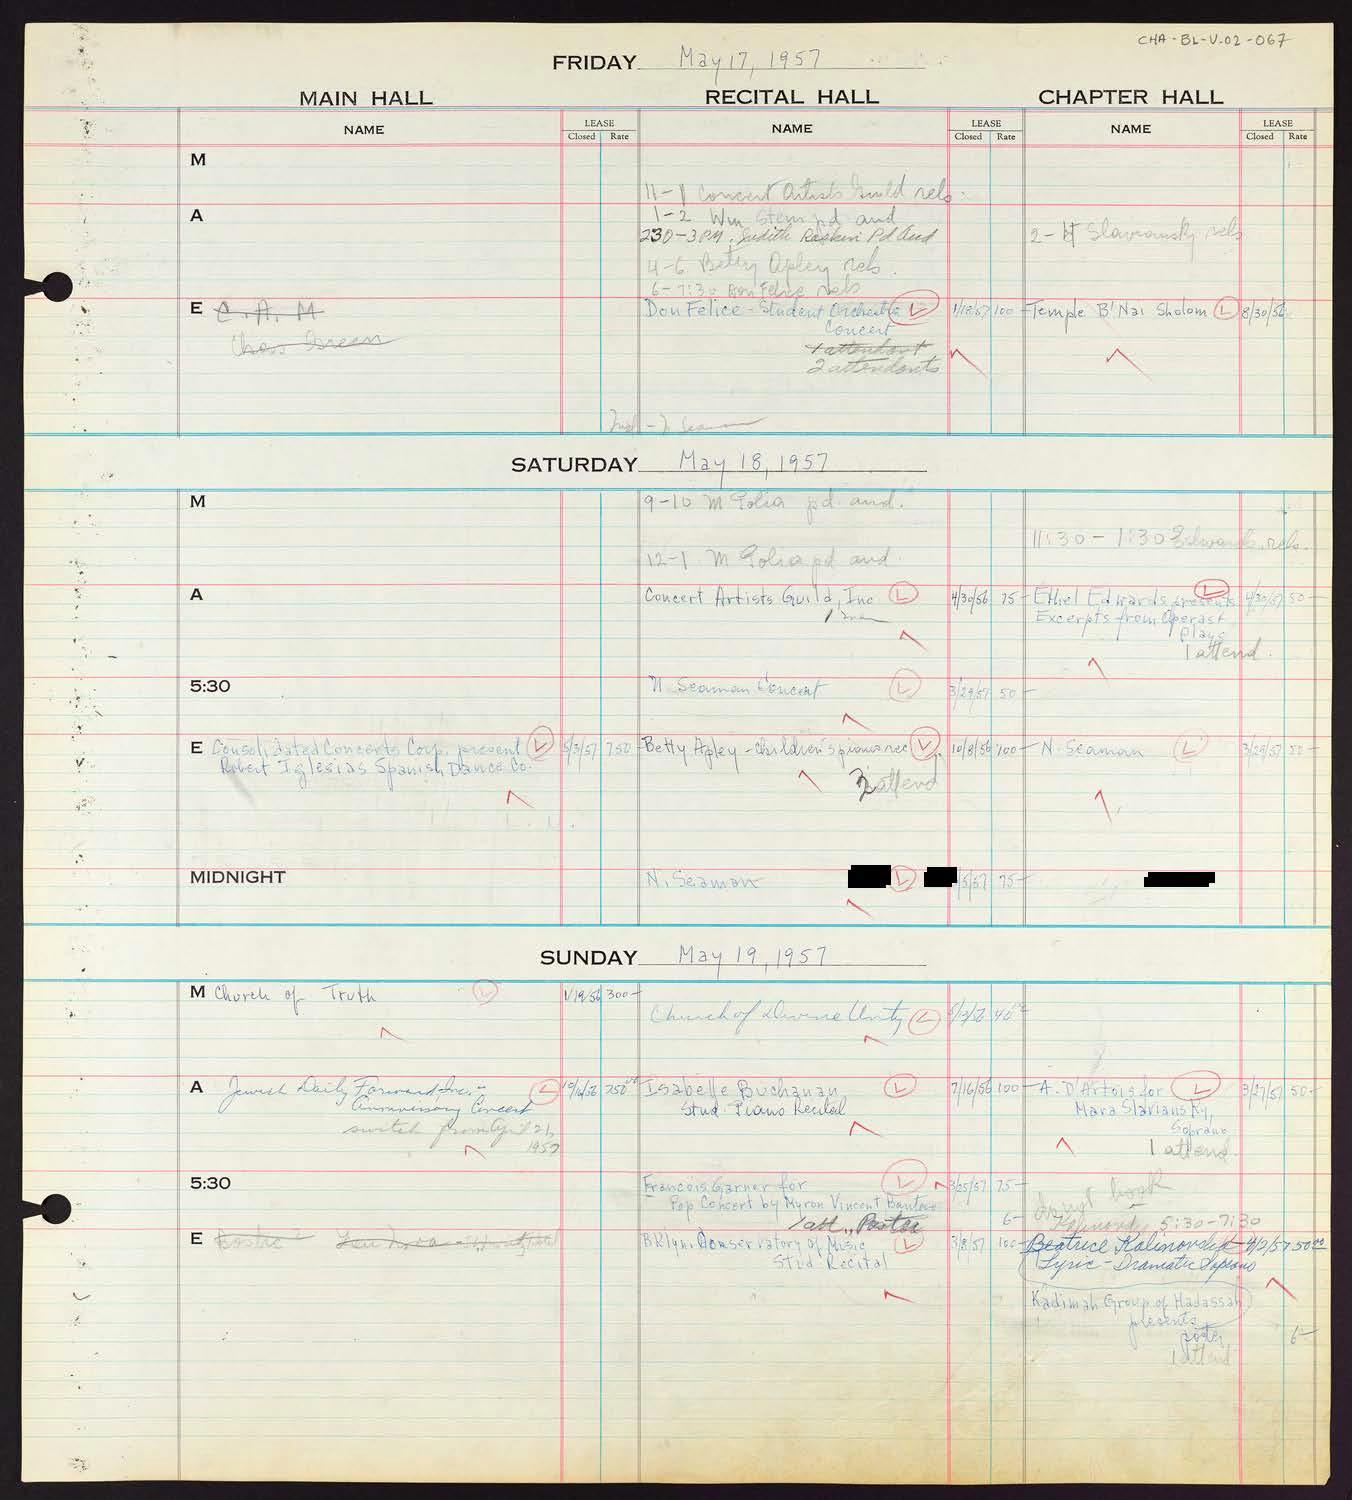 CHA-BL-V.02-067
FRIDAY May 17, 1957
MAIN HALL RECITAL HALL CHAPTER HALL
NAME LEASE Closed Rate NAME LEASE Closed Rate NAME LEASE Closed Rate
M
11-1 Concert Artists Guild rels.
A 1-2 Wm Stern pd aud
230-3PM. Judith Raskin Pd Aud 2- Slaviansky rels
4-6 Betty Apley rels.
6-7:30 Don Felice rels
E C.A.M Don Felice - Student Orchestra L 1/18/57 100- Temple B'Nai Sholom L 8/30/56
Concert
1 attendant
2 attendants
SATURDAY May 18, 1957
M 9-10 M Polia pd aud.
11:30 - 1:30 Edwards. rels.
12-1 M Polia pd aud
A Concert Artists Guild, Inc L 4/30/56 75- Ethel Edwards presents L 4/30/57 50-
1 man Excerpts from Operas +
Plays
1 attend.
5:30 N Seaman Concert L 3/29/57 50-
E Consolidated Concerts Corp. present L 5/3/57 750- Betty Apley - children's piano rec L 10/8/56 100- N. Seaman L 3/29/57 50-
Robert Iglesias Spanish Dance Co.
attend
MIDNIGHT N. Seaman L 5/57 75-
SUNDAY May 19, 1957
M Church of Truth L 1/19/56 300-
Church of Divine Unity L 40
A Jewish Daily Forward Inc. - L 750 Isabelle Buchanan L 7/16/56 100- A. D'Artois for L 3/27/57 50-
Anniversary Concert Stud. Piano Recital Mara Slaviansky,
switch from April 21, Soprano
1957 1 attend.
5:30 Francois Garner for L 3/25/57 75- do not book
Pop Concert by Myron Vincent
1 att., Poster 6- Kalinovska 5:30-7:30
E Bklyn. Conservatory of Music L 3/8/57 100- Beatrice Kalinovska 4/2/57 50
Stud. Recital Lyric-Dramatic Soprano
Kadimah Group of Hadassah
presents
poster 6-
1 attend